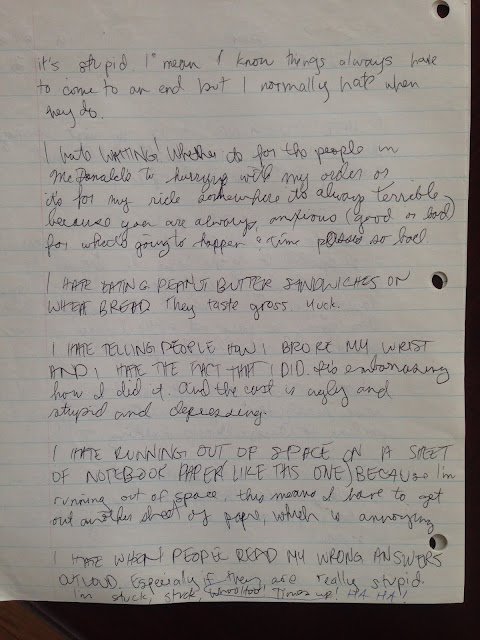 it's stupid. I mean I know things always have
to come to an end but I normally hate when
they do.
I hate WAITING! Whether its for the people in
McDonalds to hurrying with my order or
its for my ride somewhere its always terrible
because you are always anxious (good or bad)
for what's going to happen & time passes so bad
I HATE EATING PEANUT BUTTER SANDWICHES ON
WHEAT BREAD They taste gross. Yuck.
I HATE TELLING PEOPLE HOW I BROKE MY WRIST
AND I HATE THE FACT THAT I DID. Its embarrasing
how I did it. And the cast is ugly and
stupid and depressing.
I HATE RUNNING OUT OF SPACE ON A SHEET
OF NOTEBOOK PAPER (LIKE THIS ONE) BECAUSE I'm
running out of space, this means I have to get
out another sheet of paper, which is annoying
I HATE WHEN PEOPLE READ MY WRONG ANSWERS
OUTLOUD. Especialy if they are really stupid.
I'm stuck, stuck, Times up! HA HA!